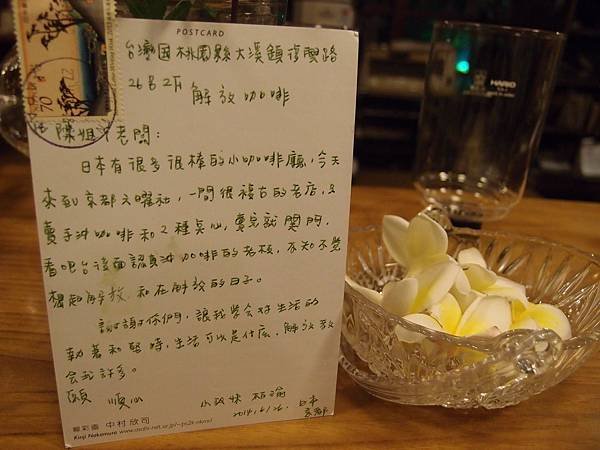 POSTCARD
70
台灣国桃園縣大溪鎮復興路
26号2F
解放咖啡
陳姐、老闆:
日本有很多很棒的小咖啡廳,今天
來到京都六曜社,一間很複古的老店,只
賣手沖咖啡和2種點心,賣完就關門,
看吧台後面認真沖咖啡的老板,不知不覺
想起解放,和在解放的日子。
謝謝你們,讓我學会对生活的
執著和堅持,生活可以是什広,解放教
会我許多。
順心
日本
2014,6/26.
京都
線彩画 中村欣司
Kinji Nakamura www.asahi-net.or.jp/~
HARIO